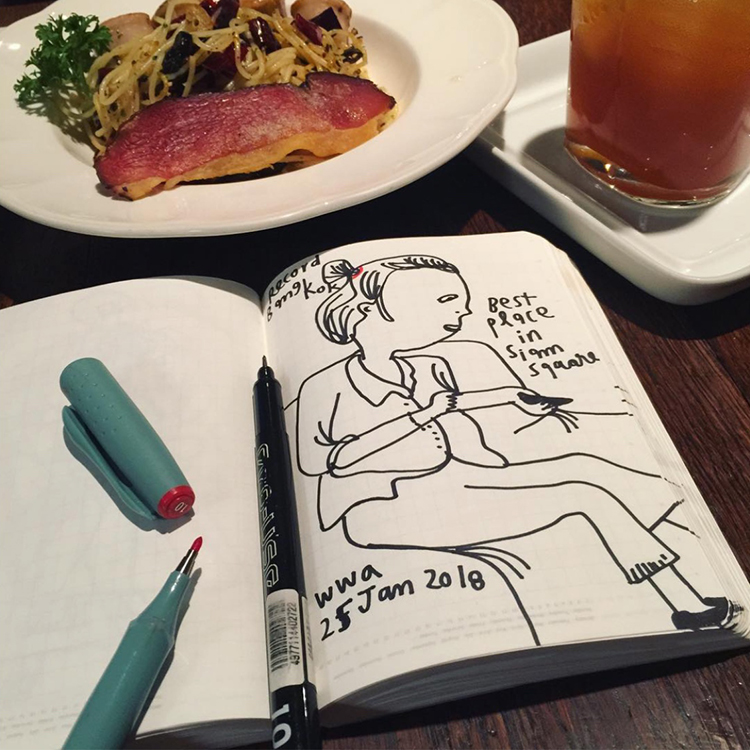 Record
Bangkok
Best
place
in
Siam
Square
wwa
25 Jan 2018
4977114402722
10
10